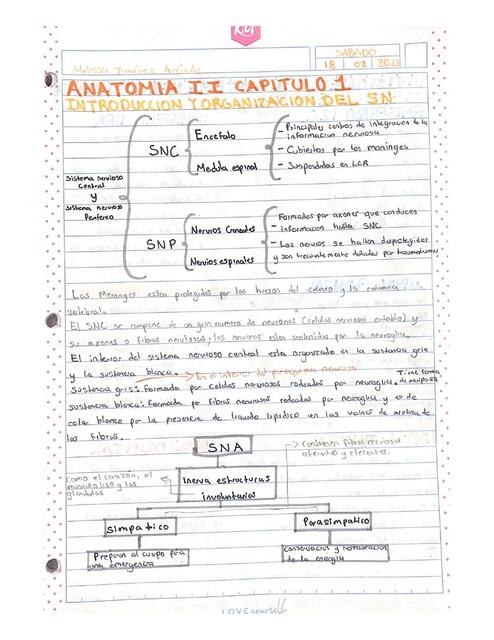 SABADO
Melissa Jiménez Arévalo
18 02 2023
ANATOMIA II CAPITULO 1
INTRODUCCION Y ORGANIZACION DEL SN
Sistema nervioso
Central
y
Sistema nervioso
Periferico
SNC
Encefalo
Medula espinal
- Principales centros de integracion de la
informacion nerviosa
- Cubiertos por las meninges
- Suspendidas en LCR
SNP
Nervios Craneales
Nervios espinales
- Formados por axones que conducen
informacion hasta SNC
- Los nervios se hallan desprotegidos
y son frecuentemente dañados por traumatismos
Las Meninges estan protegidos por los huesos del craneo y la columna
vertebral.
El SNC se compone de un gran numero de neuronas (celulas nerviosas
su axones o fibras nerviosas, las neuronas estan sostenidas por la neuroglia.
El interior del sistema nervioso central esta organizado en la sustancia gris
y la sustancia blanca. → En el interior del
Sustancia gris: Formada por celulas nerviosas rodeadas por neuroglia.
Tiene forma
de mariposa
sustancia blanca: Formada por fibras nerviosas rodeadas por neuroglia y es de
color blanco por la presencia de liquido lipidico en las vainas de mielina de
las fibras.
SNA
Contienen fibras nerviosas
aferentes y eferentes.
Como el corazón, el
musculo liso y las
glandulas
Inerva estructuras
involuntarias
Simpatico
Parasimpatico
Preparan al cuerpo para
una emergencia
Conservacion y restauracion
de la energia
LOVE yourself